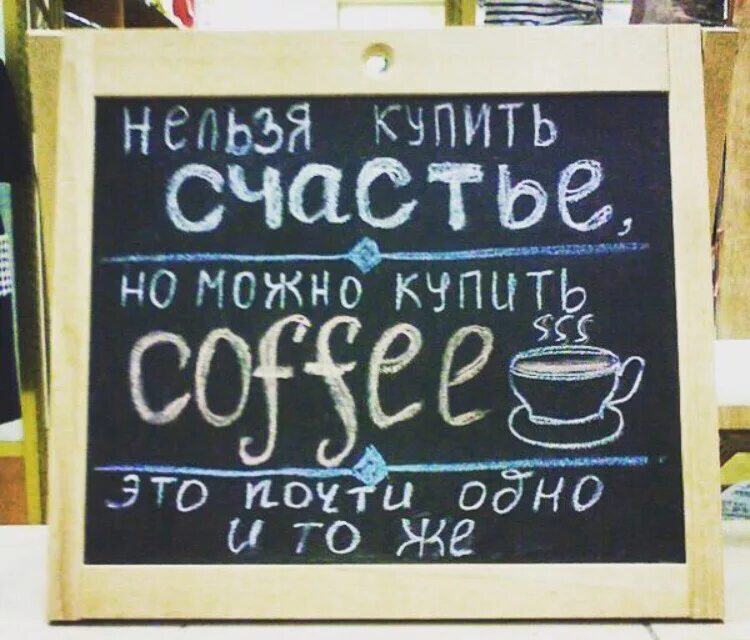 нельзя купить
счастье,
но можно купить
coffee
это почти одно
и то же